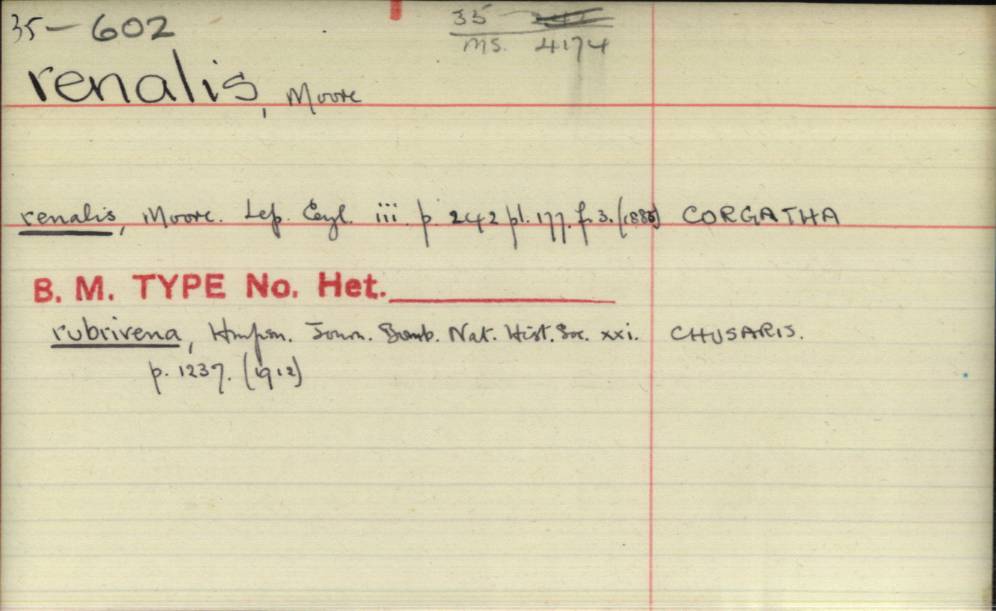 35-602
35
ms. 4174
renalis, Moore
renalis, Moore. Lep. Ceyl. iii p. 242 pl. 177. f. 3. (1885) CORGATHA
B. M. TYPE No. Het.
rubrivena, Hmpsn. Journ. Bomb. Nat. Hist. Soc. xxi. CHUSARIS.
p. 1237. (1912)